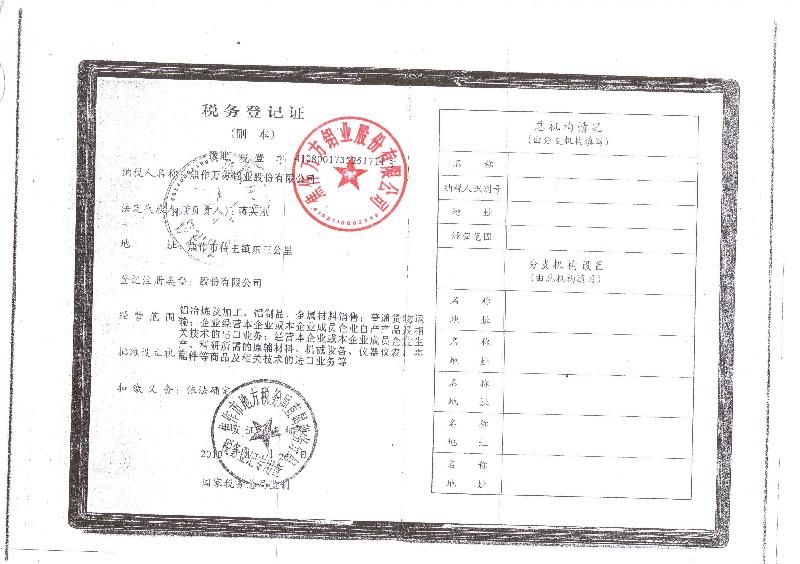 税务登记证
(副 本)
税登字
纳税人名称：焦作万方铝业股份有限公司
法定代表人(负责人)：
地 址：焦作市待王镇东三公里
登记注册类型：股份有限公司
经营范围：铝冶炼及加工，铝制品、金属材料销售；普通货物运
输；企业经营本企业或本企业成员企业自产产品及相
关技术的出口业务；经营本企业或本企业成员企业生
产、科研所需的原辅材料、机械设备、仪器仪表、零
配件等商品及相关技术的进口业务等
批准设立机
扣缴义务：依法确定
2010
国家税务总局监制
焦作万方铝业股份有限公司
总机构情况
(由分支机构填写)
名 称
纳税人识别号
地 址
经营范围
分支机构设置
(由总机构填写)
名 称
地 址
名 称
地 址
名 称
地 址
名 称
地 址
名 称
地 址